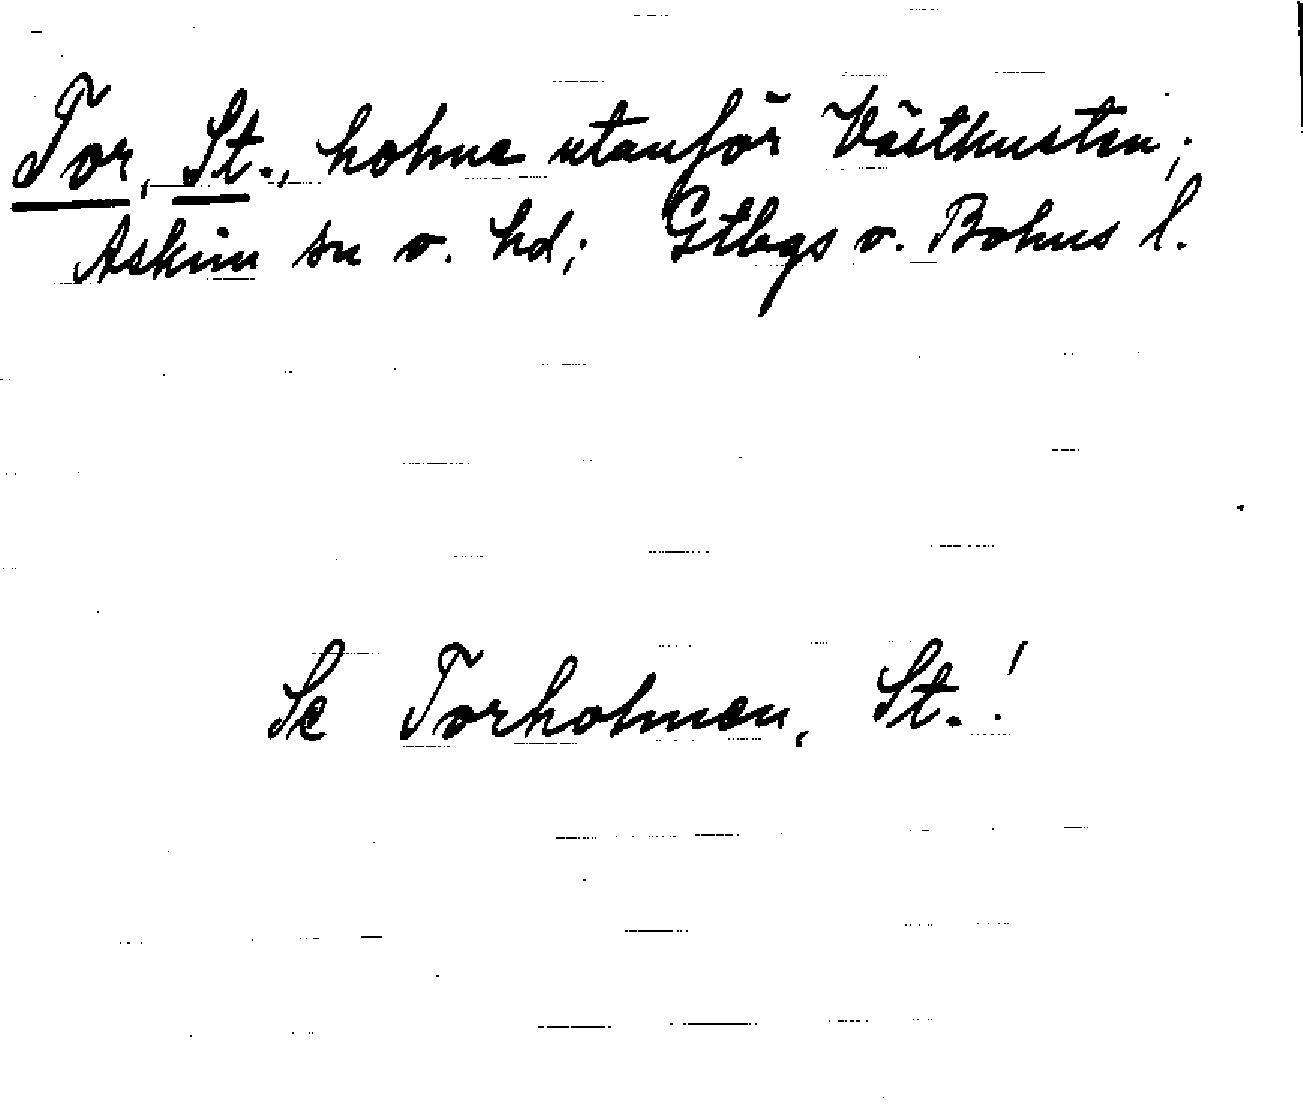 Tor, St., holme utanför Västkusten;
Askim sn o. hd; Gtbgs o. Bohus l.
Se Torholmen, St.!